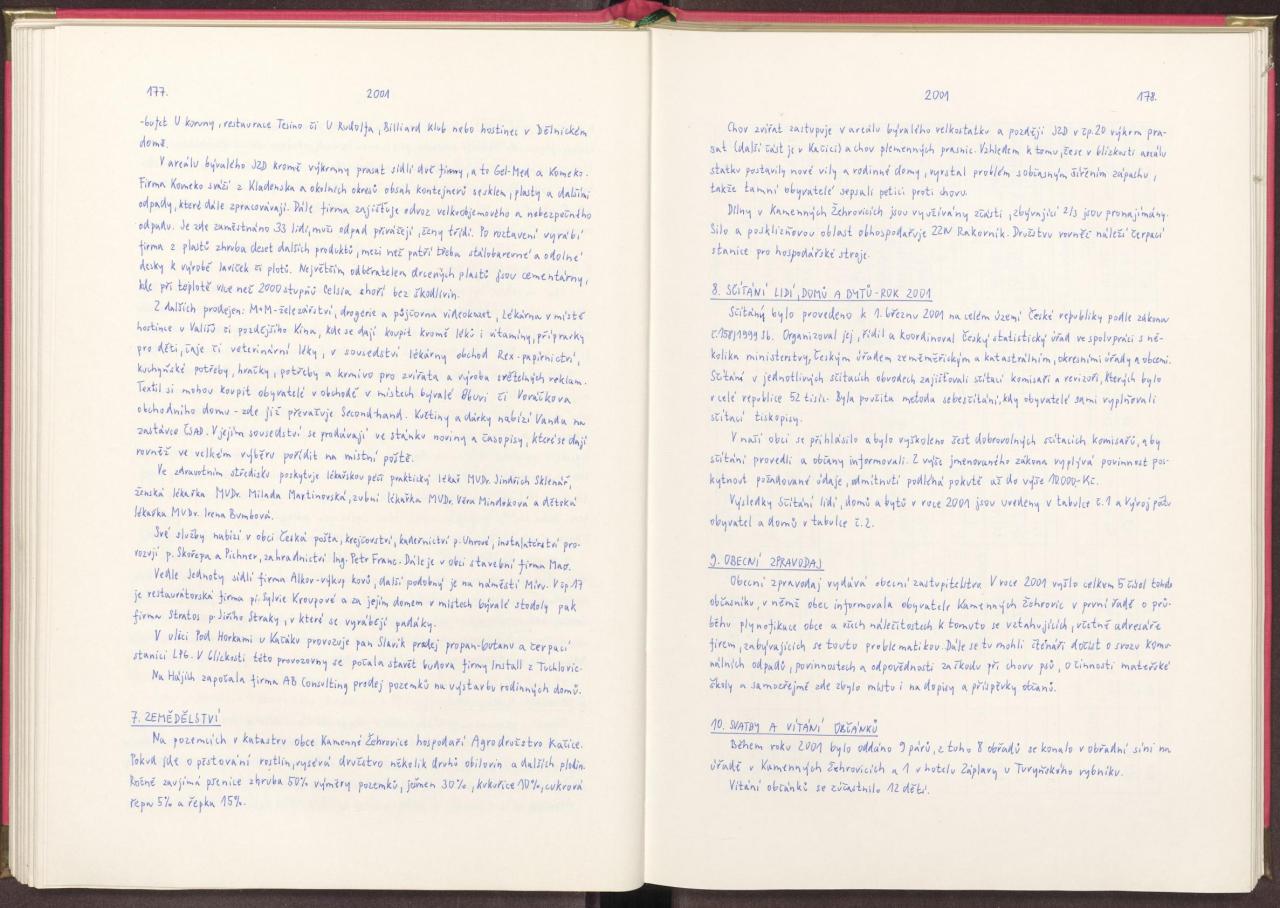 177.
2001
-bufet U koruny, restaurace Tesino či U Rudolfa, Billiard Klub nebo hostinec v Dělnickém
domě.
V areálu bývalého JZD kromě výkrmny prasat sídlí dvě firmy, a to Gel-Med a Komeko.
Firma Komeko sváží z Kladenska a okolních okresů obsah kontejnerů se sklem, plasty a dalšími
odpady, které dále zpracovávají. Dále firma zajišťuje odvoz velkoobjemového a nebezpečného
odpadu. Je zde zaměstnáno 33 lidí, muži odpad přivážejí, ženy třídí. Po roztavení vyrábí
firma z plastů zhruba deset dalších produktů, mezi než patří třeba stálobarevné a odolné
desky k výrobě laviček či plotů. Největším odběratelem drcených plastů jsou cementárny,
kde při teplotě více než 2000 stupňů Celsia shoří bez škodlivin.
Z dalších prodejen: M+M-železářství, drogerie a půjčovna videokazet, Lékárna v místě
hostince u Vališů či pozdějšího Kina, kde se dají koupit kromě léků i vitaminy, přípravky
pro děti, čaje či veterinární léky, v sousedství lékárny obchod Rex-papírnictví,
kuchyňské potřeby, hračky, potřeby a krmivo pro zvířata a výroba světelných reklam.
Textil si mohou koupit obyvatelé v obchodě v místech bývalé Obuvi či Voráčkova
obchodního domu - zde již převažuje Second-hand. Květiny a dárky nabízí Vanda na
zastávce ČSAD. V jejím sousedství se prodávají ve stánku noviny a časopisy, které se dají
rovněž ve velkém výběru pořídit na místní poště.
Ve zdravotním středisku poskytuje lékařskou péči praktický lékař MUDr. Jindřich Sklenář,
ženská lékařka MUDr. Milada Martinovská, zubní lékařka MUDr. Věra Mindeková a dětská
lékařka MUDr. Irena Bumbová.
Své služby nabízí v obci Česká pošta, krejčovství, kadeřnictví p. Uhrové, instalatérství pro-
vozují p. Skořepa a Pichner, zahradnictví Ing. Petr Franc. Dále je v obci stavební firma Mao.
Vedle Jednoty sídlí firma Alkov-výkup kovů, další podobný je na náměstí Míru. V čp 17
je restaurátorská firma pí. Sylvie Kroupové a za jejím domem v místech bývalé stodoly pak
firma Stratos p. Jiřího Straky, v které se vyrábějí padáky.
V ulici Pod Horkami u Kačáku provozuje pan Slavík prodej propan-butanu a čerpací
stanici LPG. V blízkosti této provozovny se počala stavět budova firmy Install z Tuchlovic.
Na Hájích započala firma AB Consulting prodej pozemků na výstavbu rodinných domů.
7. ZEMĚDĚLSTVÍ
Na pozemcích v katastru obce Kamenné Žehrovice hospodaří Agrodružstvo Kačice.
Pokud jde o pěstování rostlin, vysévá družstvo několik druhů obilovin a dalších plodin.
Ročně zaujímá pšenice zhruba 50% výměry pozemků, ječmen 30%, kukuřice 10%, cukrová
řepa 5% a řepka 15%.
2001
178.
Chov zvířat zastupuje v areálu bývalého velkostatku a později JZD v čp. 20 výkrm pra-
sat (další část je v Kačici) a chov plemenných prasnic. Vzhledem k tomu, že se v blízkosti areálu
statku postavily nové vily a rodinné domy, vyvstal problém s občasným šířením zápachu,
takže tamní obyvatelé sepsali petici proti chovu.
Dílny v Kamenných Žehrovicích jsou využívány z části, zbývající 2/3 jsou pronajímány.
Silo a posklizňovou oblast obhospodařuje ZZN Rakovník. Družstvu rovněž náleží čerpací
stanice pro hospodářské stroje.
8. SČÍTÁNÍ LIDÍ, DOMŮ A BYTŮ - ROK 2001
Sčítání bylo provedeno k 1. březnu 2001 na celém území České republiky podle zákona
č. 158/1999 Sb. Organizoval jej, řídil a koordinoval Český statistický úřad ve spolupráci s ně-
kolika ministerstvy, Českým úřadem zeměměřickým a katastrálním, okresními úřady a obcemi.
Sčítání v jednotlivých sčítacích obvodech zajišťovali sčítací komisaři a revizoři, kterých bylo
v celé republice 52 tisíc. Byla použita metoda sebesčítání, kdy obyvatelé sami vyplňovali
sčítací tiskopisy.
V naší obci se přihlásilo a bylo vyškoleno šest dobrovolných sčítacích komisařů, aby
sčítání provedli a občany informovali. Z výše jmenovaného zákona vyplývá povinnost pos-
kytnout požadované údaje, odmítnutí podléhá pokutě až do výše 10.000 Kč.
Výsledky Sčítání lidí, domů a bytů v roce 2001 jsou uvedeny v tabulce č.1 a Vývoj počtu
obyvatel a domů v tabulce č. 2.
9. OBECNÍ ZPRAVODAJ
Obecní zpravodaj vydává obecní zastupitelstvo. V roce 2001 vyšlo celkem 5 čísel tohoto
občasníku, v němž obec informovala obyvatele Kamenných Žehrovic v první řadě o prů-
běhu plynofikace obce a všech náležitostech k tomuto se vztahujících, včetně adresáře
firem, zabývajících se touto problematikou. Dále se tu mohli čtenáři dočíst o svozu komu-
nálních odpadů, povinnostech a odpovědnosti za škodu při chovu psů, o činnosti mateřské
školy a samozřejmě zde zbylo místo i na dopisy a příspěvky občanů.
10. SVATBY A VÍTÁNÍ OBČÁNKŮ
Během roku 2001 bylo oddáno 9 párů, z toho 8 obřadů se konalo v obřadní síni na
úřadě v Kamenných Žehrovicích a 1 v hotelu Záplavy u Turyňského rybníku.
Vítání občánků se zúčastnilo 12 dětí.